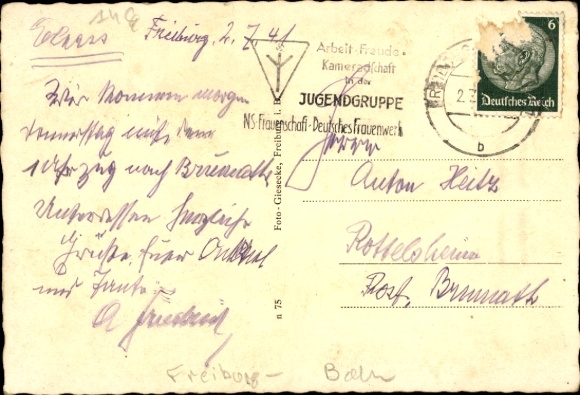 Elsass
Freiburg, 2. 7. 41
Wir kommen morgen
Donnerstag mit dem
Uhr Zug nach Brumath
Unterdessen herzliche
Grüße, Euer Onkel
und Tante
Arbeit-Freude-
Kameradschaft
in der
JUGENDGRUPPE
NS-Frauenschaft-Deutsches Frauenwerk
6
Deutsches Reich
2.7
b
Herrn
Anton Heitz
Rottelsheim
Post Brumath
Foto-Giesecke, Freiburg i. B.
n 75
Freiburg - Baden